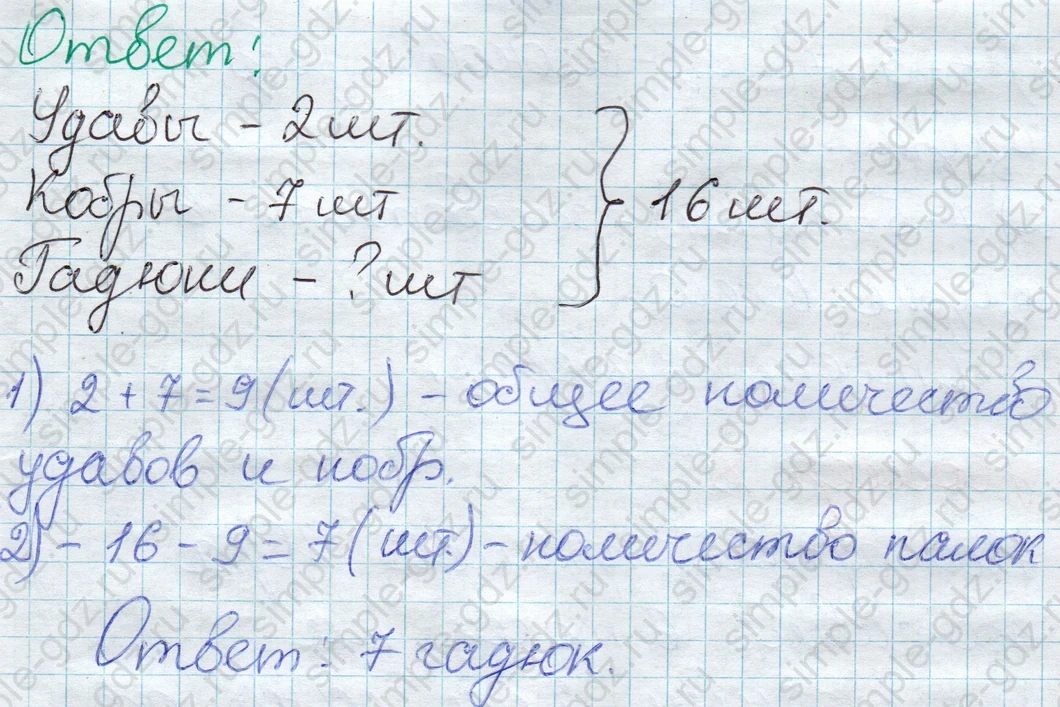 Ответ:
Удавы - 2 шт.
Кобры - 7 шт
Гадюки - ? шт
16 шт.
1) 2 + 7 = 9 (шт.) - общее количество
удавов и кобр.
2) - 16 - 9 = 7 (шт.) - количество палок
Ответ: 7 гадюк.
simple-gdz.ru